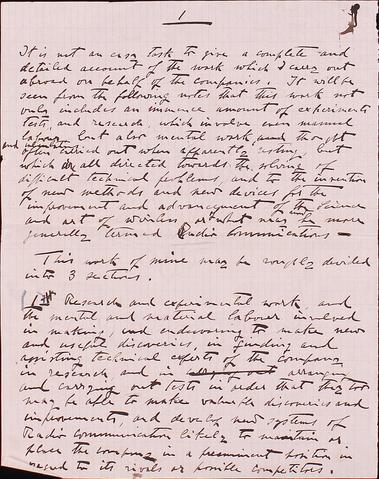 1
It is not an easy task to give a complete and
detailed account of the work which I carry out
abroad on behalf of the companies. It will be
seen from the following notes that this work not
only includes an immense amount of experiments
tests, and research, which involve even manual
labour, but also mental work, and thought
and calculation
often carried out when apparently resting, but
which is all directed towards the solving of
difficult technical problems, and to the invention
of new methods and new devices for the
improvement and advancement of the science
and art of wireless, or what may now be more
generally termed Radio Communications —
This work of mine may be roughly divided
into 3 sections.
(1) Research and experimental work, and
the mental and material labour involved
in making, and endeavouring to make new
and useful discoveries, in guiding and
assisting technical experts of the Company
in research, and in arranging
and carrying out tests in order that they too
may be able to make valuable discoveries and
improvements, and develop new systems of
Radio communication likely to maintain or
place the company in a prominent position in
regard to its rivals or possible competitors.